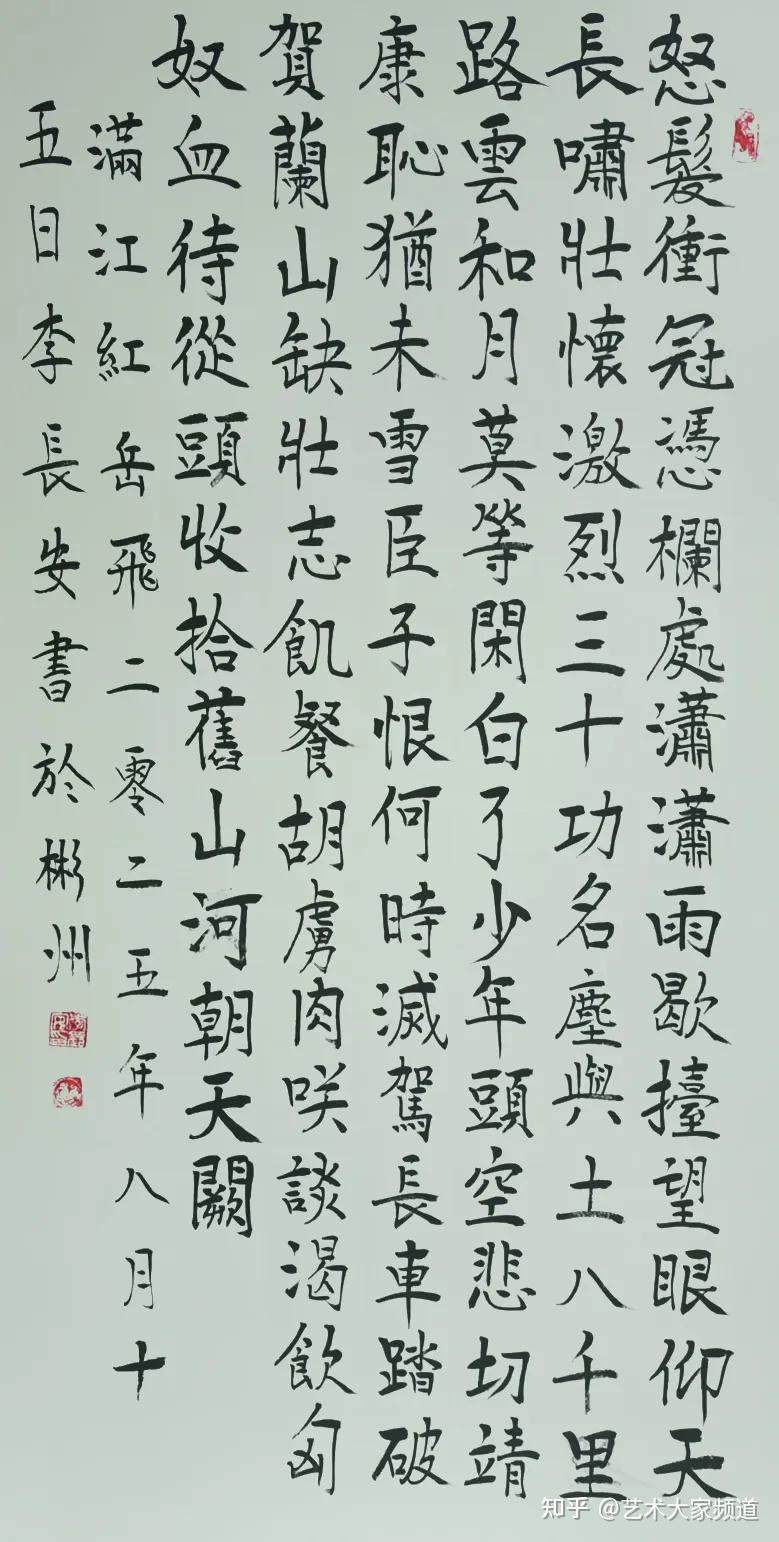 怒髮衝冠憑欄處瀟瀟雨歇擡望眼仰天
長嘯壯懷激烈三十功名塵與土八千里
路雲和月莫等閑白了少年頭空悲切靖
康恥猶未雪臣子恨何時滅駕長車踏破
賀蘭山缺壯志飢餐胡虜肉咲談渴飲匈
奴血待從頭收拾舊山河朝天闕
滿江紅岳飛二零二五年八月十
五日李長安書於彬州
知乎 @艺术大家频道